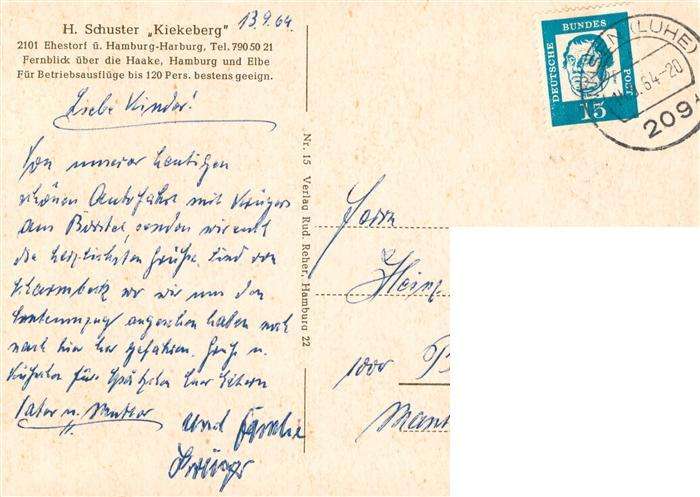 H. Schuster „Kiekeberg"
2101 Ehestorf ü. Hamburg-Harburg, Tel. 790 50 21
Fernblick über die Haake, Hamburg und Elbe
Für Betriebsausflüge bis 120 Pers. bestens geeign.
13.9.64.
Liebe Kinder!
Von unserer heutigen
schönen Autofahrt mit Krügers
am Börstel, senden wir euch
die herzlichsten Grüße. Sind von
wo wir uns den
angesehen haben noch
nach hier her gefahren. Gruß u.
für
Vater u. Mutter
und Familie
Krüger
Nr. 15 Verlag Rud. Reher, Hamburg 22
DEUTSCHE BUNDESPOST
15
(LUHE)
.64-20
209
Herrn
Heinz
1000 B